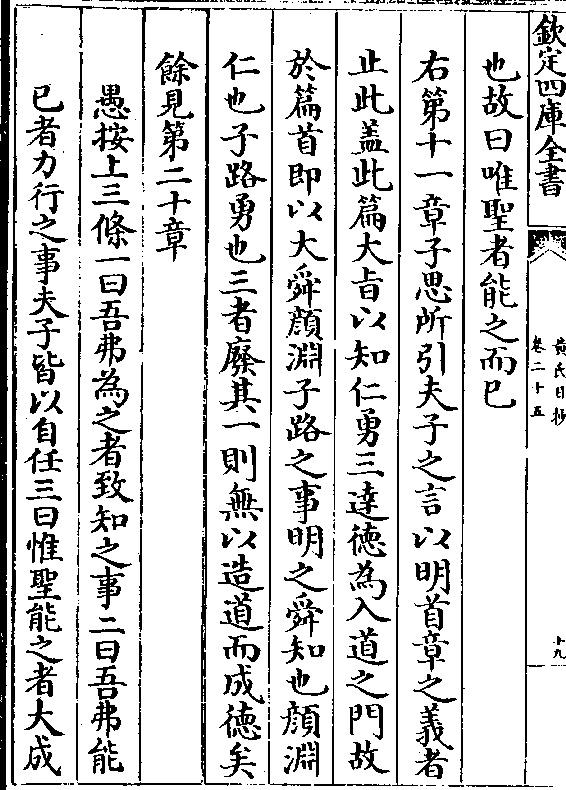 欽定四庫全書
黄氏日抄
卷二十五
十九
也故曰唯聖者能之而已
右第十一章子思所引夫子之言以明首章之義者
止此盖此篇大旨以知仁勇三達德為入道之門故
於篇首即以大舜顔淵子路之事明之舜知也顔淵
仁也子路勇也三者廢其一則無以造道而成德矣
餘見第二十章
愚按上三條一曰吾弗為之者致知之事二曰吾弗能
已者力行之事夫子皆以自任三曰惟聖能之者大成